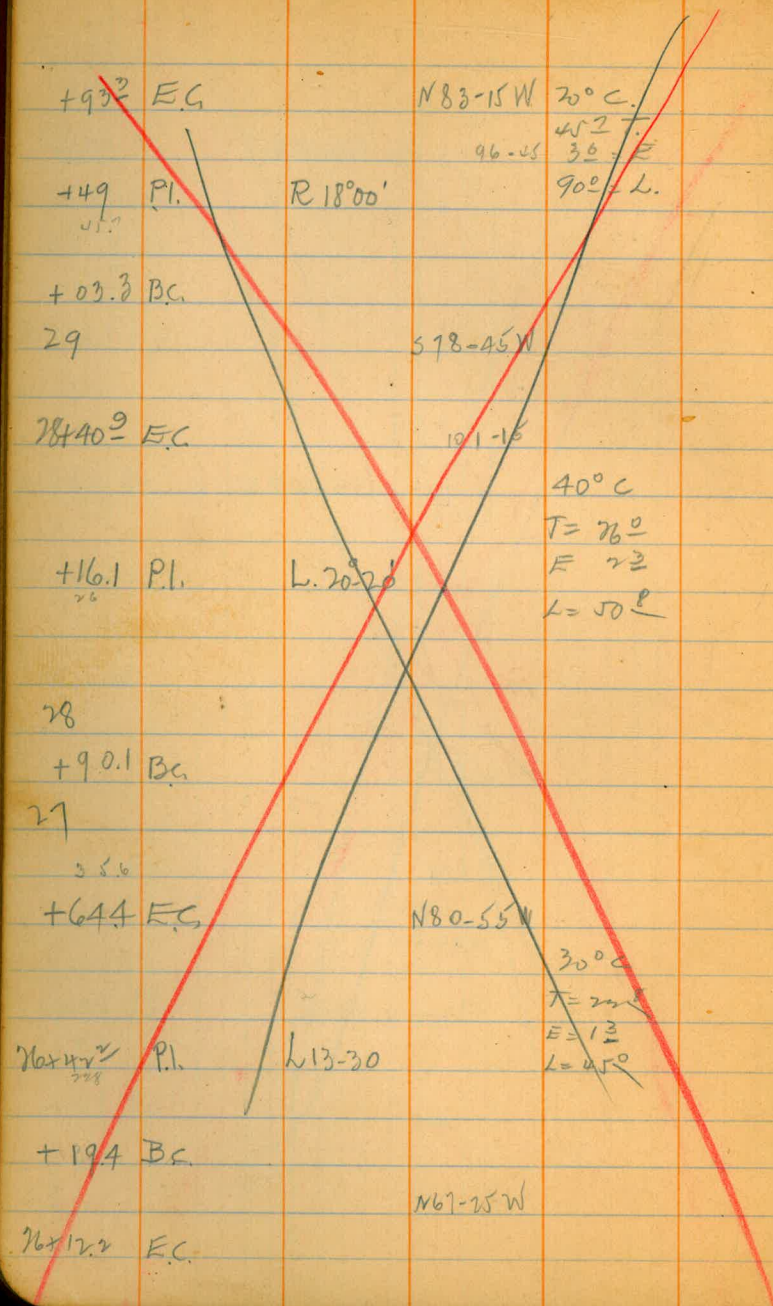 +93³ E.C. N83-15W 20° C.
45⁷ T.
96-45 3⁶ = E
+49 P.I. R 18°00' 90⁰ = L.
45.7
+03.3 B.C.
29 S78-45W
28+40⁹ E.C. 101-15
40° C
T= 26⁰
+16.1 P.I. L. 20°-20' E 2³
26
L= 50⁸
28
+90.1 B.C.
27
35.6
+64.4 E.C. N80-55W
30° C
T= 22⁸
E= 1³
26+42² P.I. L13-30 L= 45⁰
22.8
+19.4 B.C.
N67-25W
26+12.2 E.C.